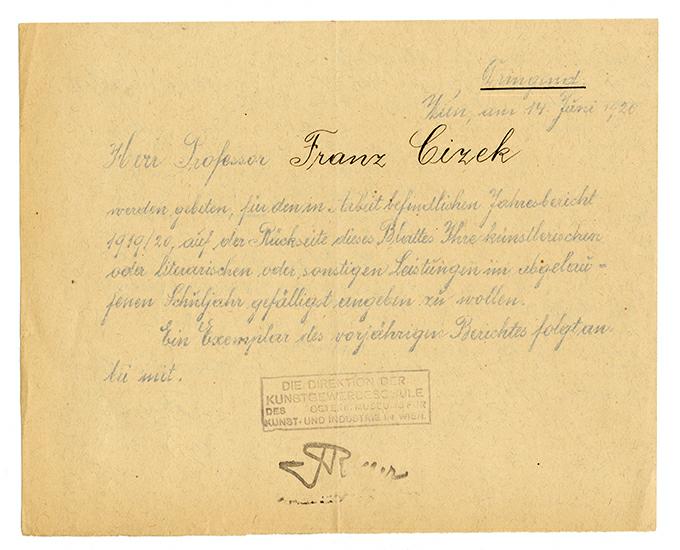 Dringend.
Wien, am 14. Juni 1920
Herr Professor Franz Cizek
werden gebeten, für den in Arbeit befindlichen Jahresbericht
1919/20, auf der Rückseite dieses Blattes Ihre künstlerischen
oder literarischen oder sonstigen Leistungen im abgelau-
fenen Schuljahr gefälligst angeben zu wollen.
Ein Exemplar des vorjährigen Berichtes folgt an-
bei mit.
DIE DIREKTION DER
KUNSTGEWERBESCHULE
DES ÖSTERR. MUSEUMS FÜR
KUNST- UND INDUSTRIE IN WIEN.